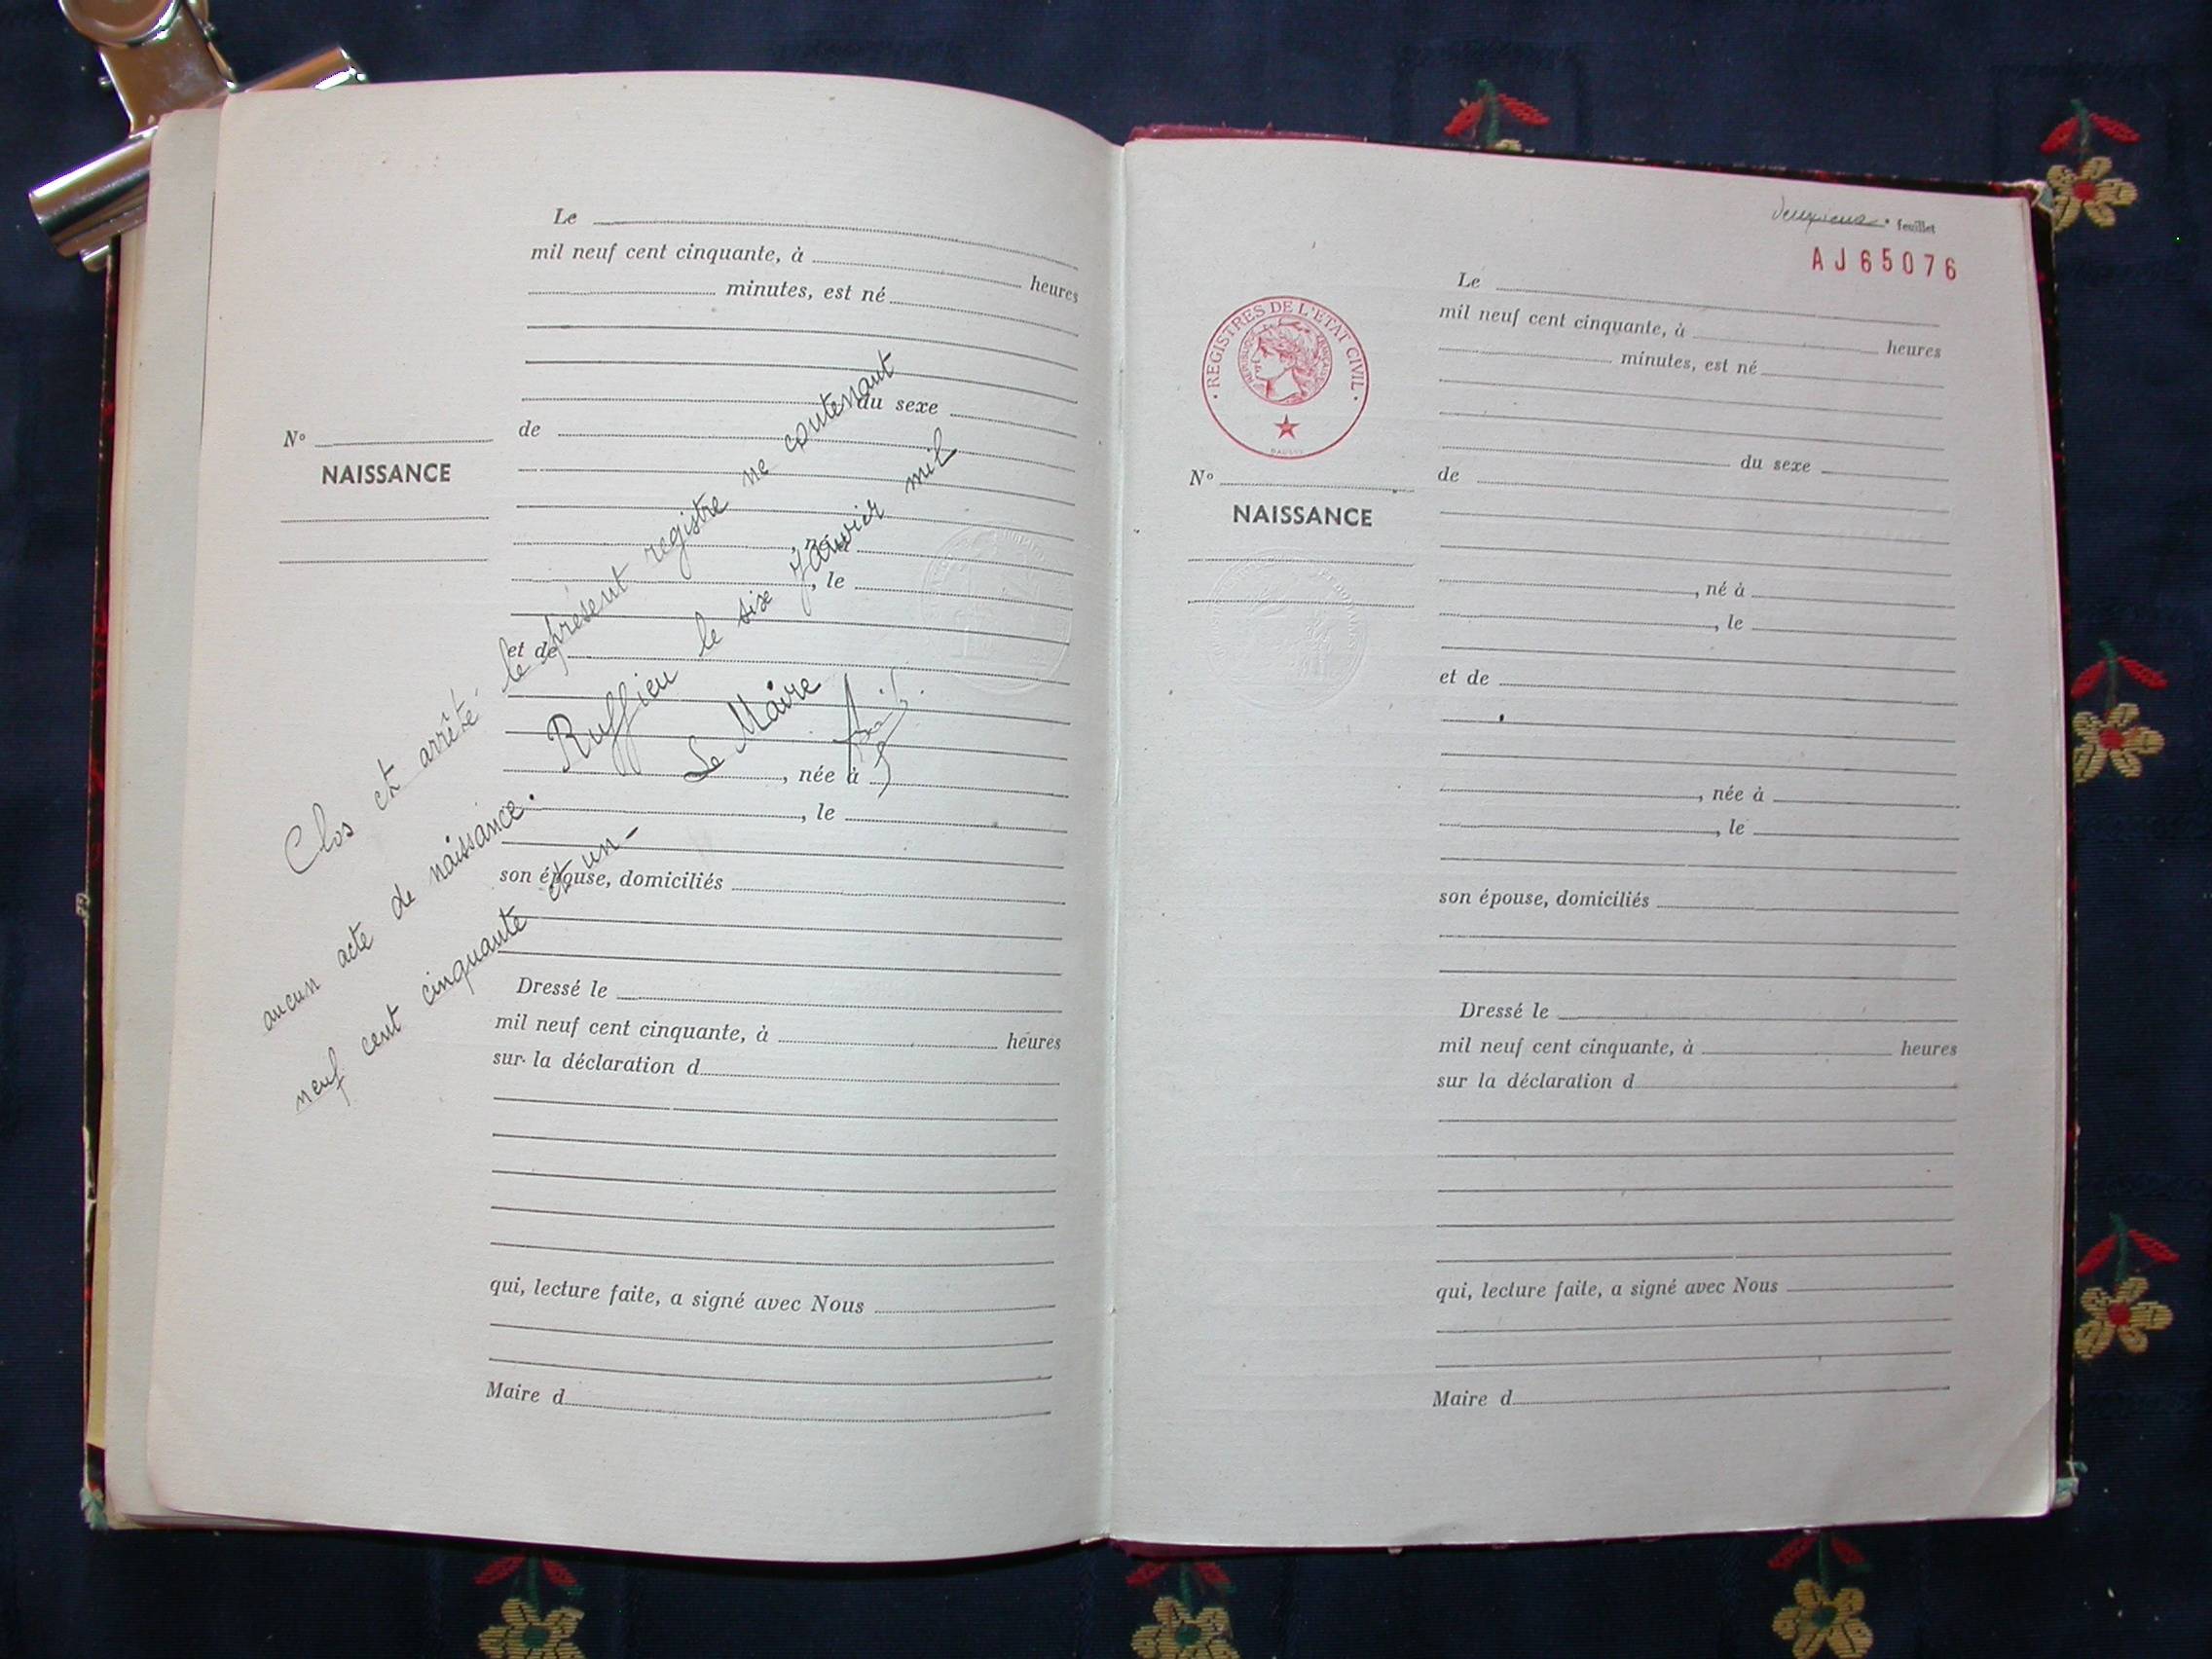 Le
mil neuf cent cinquante, à heures
minutes, est né
du sexe
de
, né à
, le
et de
, née à
, le
son épouse, domiciliés
Dressé le
mil neuf cent cinquante, à heures
sur la déclaration d
qui, lecture faite, a signé avec Nous
Maire d
Nº
NAISSANCE
Clos et arrêté le présent registre ne contenant
aucun acte de naissance. Ruffieu le six janvier mil
neuf cent cinquante et un - Le Maire
deuxième feuillet
AJ65076
REGISTRES DE L'ETAT CIVIL
REPUBLIQUE FRANÇAISE
Le
mil neuf cent cinquante, à heures
minutes, est né
du sexe
Nº
NAISSANCE
de
, né à
, le
et de
, née à
, le
son épouse, domiciliés
Dressé le
mil neuf cent cinquante, à heures
sur la déclaration d
qui, lecture faite, a signé avec Nous
Maire d